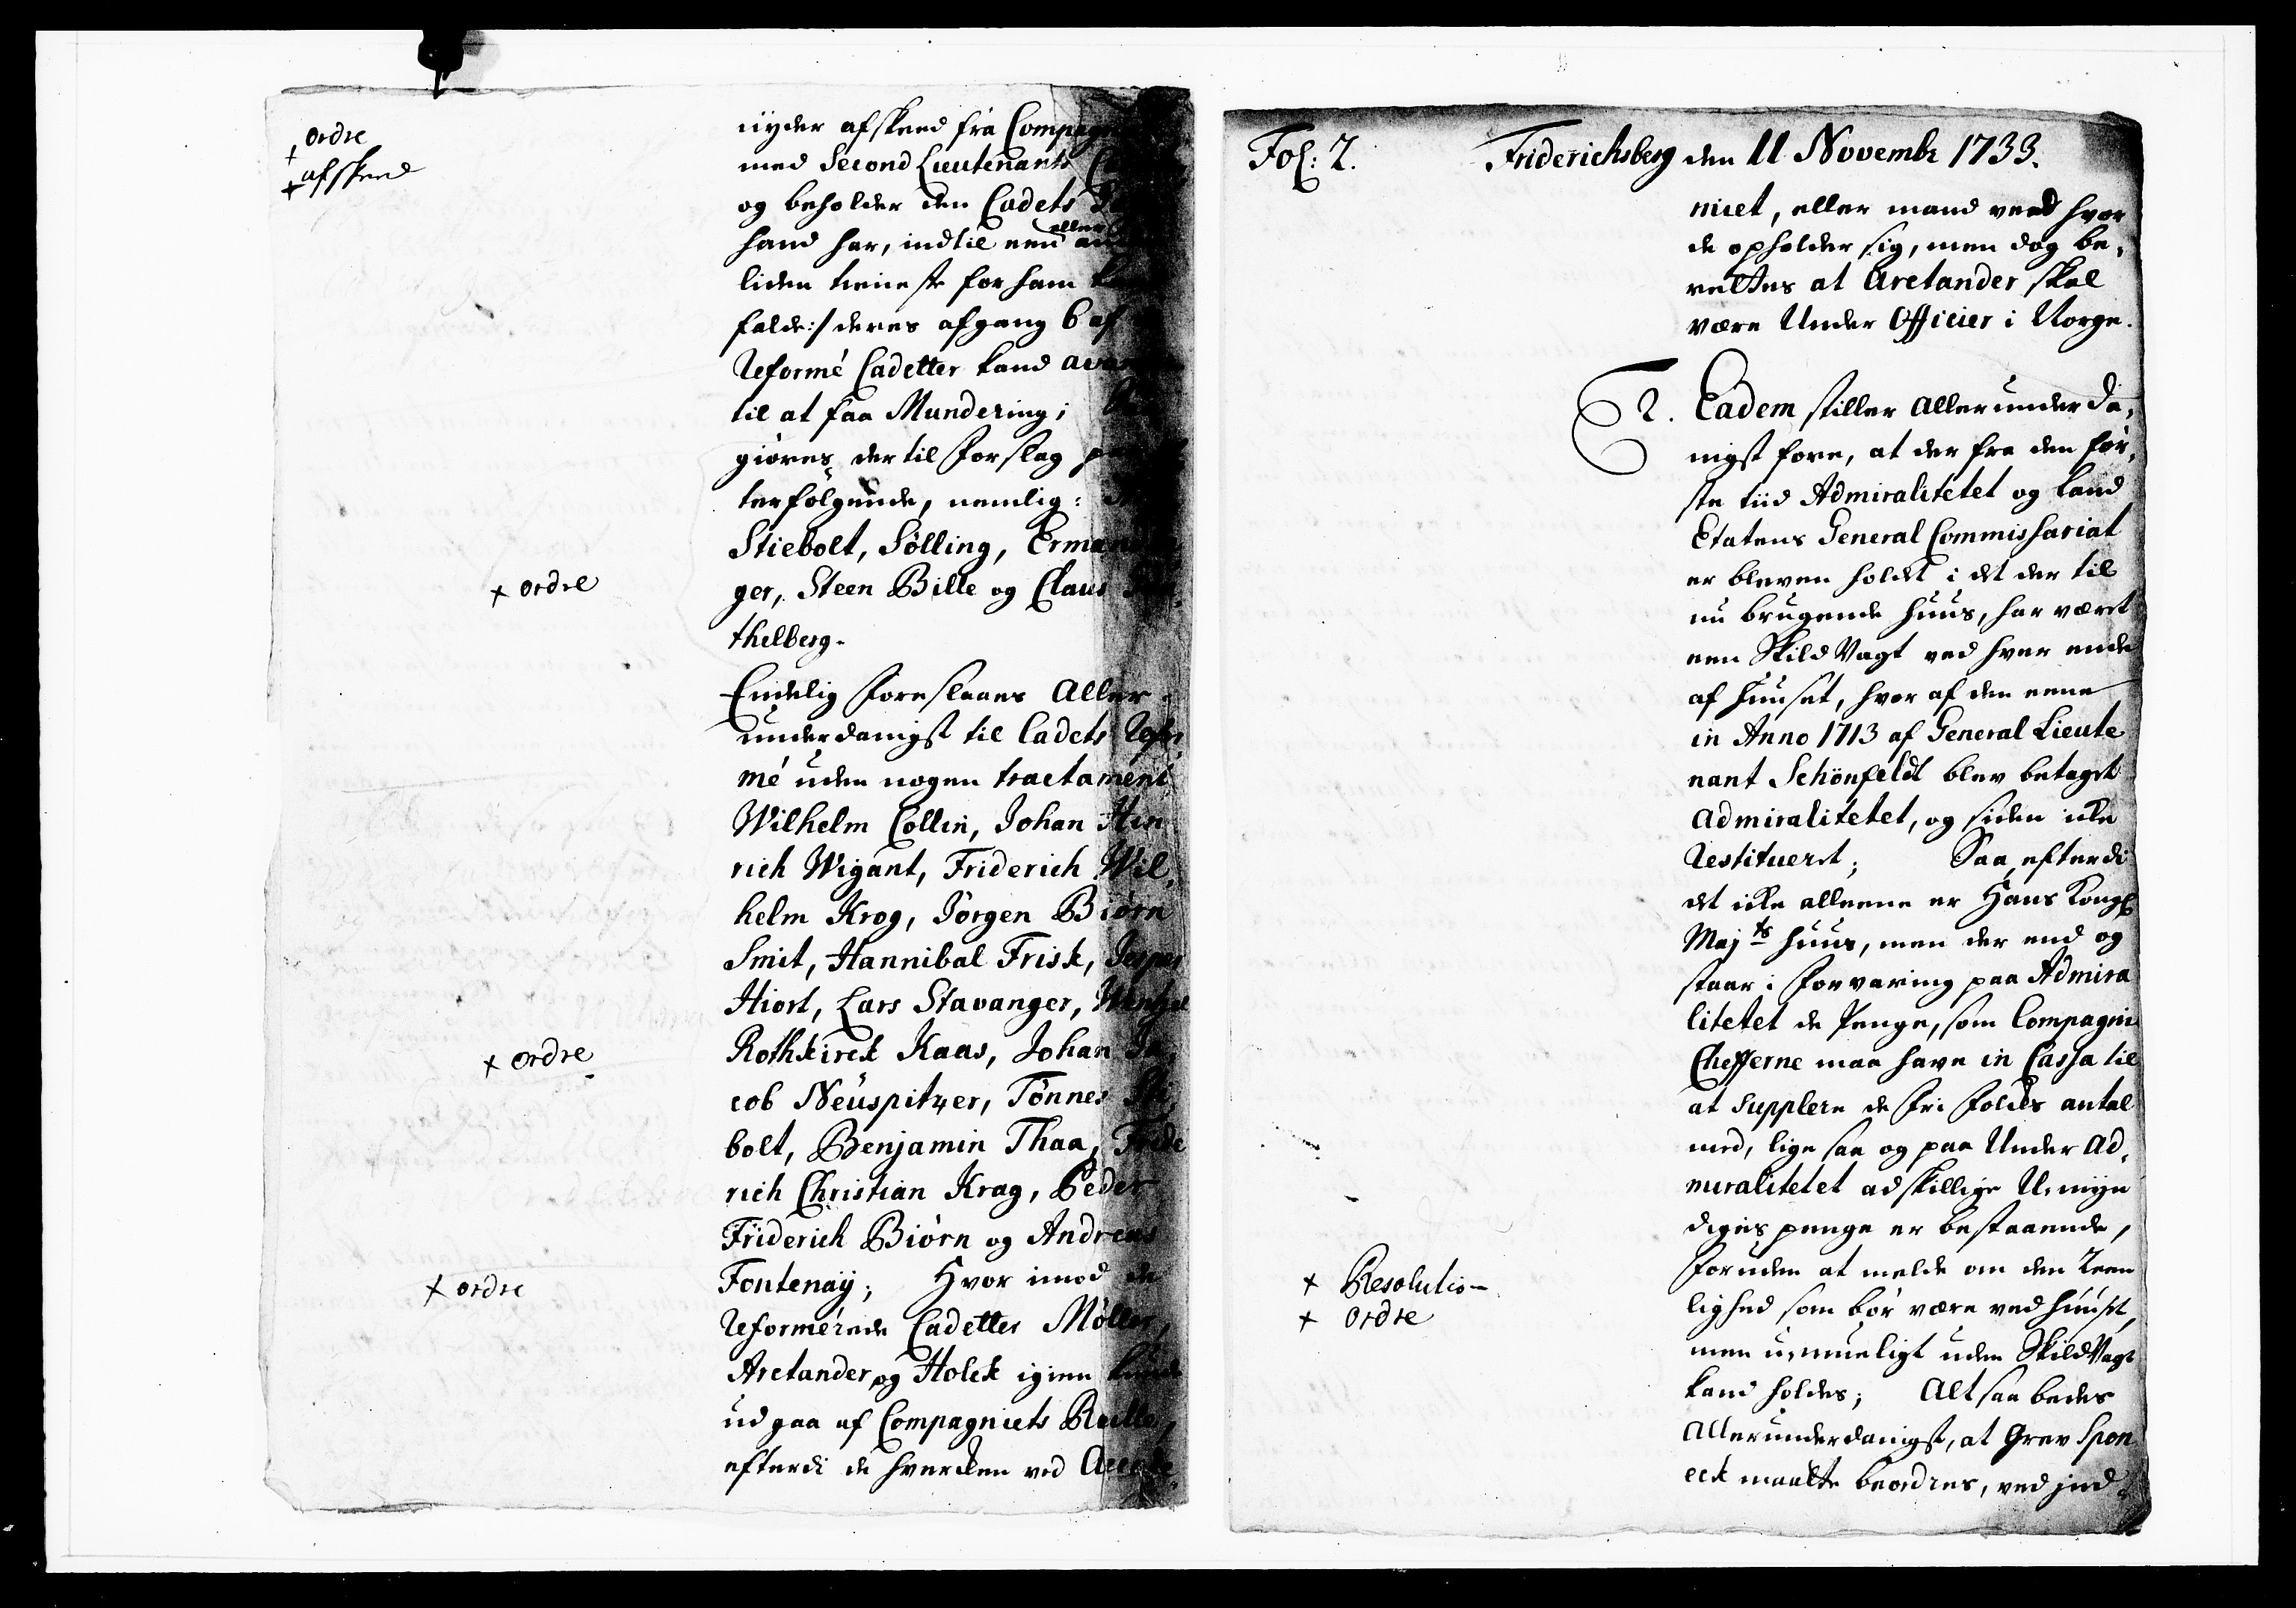 + ordre
+ afskeed
nyder afskeed fra
med Second Lieutenants
og beholder den Cadets
hand har, indtil een eller
liden tieniste for ham
falde:/ deres afgang 6 af
Reformé Cadetter kand
til at faa Mundering;
giøres der til Forslag
terfølgende, nemlig:
Stiebolt, Sølling,
+ ordre
ger, Steen Bille og Claus
thelberg.
Endelig Foreslaaes Aller-
underdanigst til Cadets Refor,
mé uden nogen tractament
Wilhelm Collin, Johan Hin
rich Wigant, Friderich Wil,
helm Krog, Jørgen Biørn
Smit, Hannibal Frisk, Jesper
Hiort, Lars Stavanger, Wentzel
+ ordre
Rothkirck Kaas, Johan Ja,
cob Neüspitzer, Tønnes
bolt, Benjamin Thaa, Fride
rich Christian Krag, Peder
Friderich Biørn og Andreas
+ ordre
Fontenaÿ; Hvor imod de
Reformérede Cadetter Møller,
Aretander og Holck igien kunde
ud gaa af Compagniets Rulle,
efterdi de hverken ved
Fol: 2. Friderichsberg den 11 Novembr 1733.
niet, eller mand veed hvor
de opholder sig, men dog be,
rettes at Aretander skal
være Under Officier i Norge.
2. Eadem stiller Allerunderda,
nigst fore, at der fra den før,
ste tiid Admiralitetet og Land
Etatens General Commissariat
er bleven holdt i det der til
nu brugende Huus, har været
een Skild Vagt ved hver ende
af Huuset, hvor af den eene
in Anno 1713 af General Lieute
nant Schönfeldt blev betaget
Admiralitetet, og siden icke
Restitueret; Saa efterdi
det icke alleene er Hans Kongl
Majts Huus, men der end og
staar i Forvaring paa Admira
litetet de Penge, som Compagnie
Chefferne maa have in Cassa til
at Supplere de Fri Folckes antal
med, lige saa og paa Under Ad,
miralitetet adskillige U,myn
diges penge er bestaaende,
+ Resolution
Foruden at melde om den Reen
+ ordre
lighed som bør være ved Huuset,
men u,mueligt uden Skild Vagt
kand holdes; Altsaa bedes
Allerunderdanigst, at Grev Spon
eck maatte beordres, ved ind-